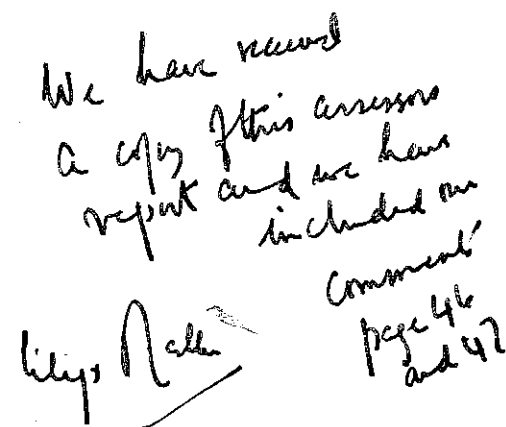 We have received
a copy of this assessors
report and we have
included our
comments
page 46
and 47